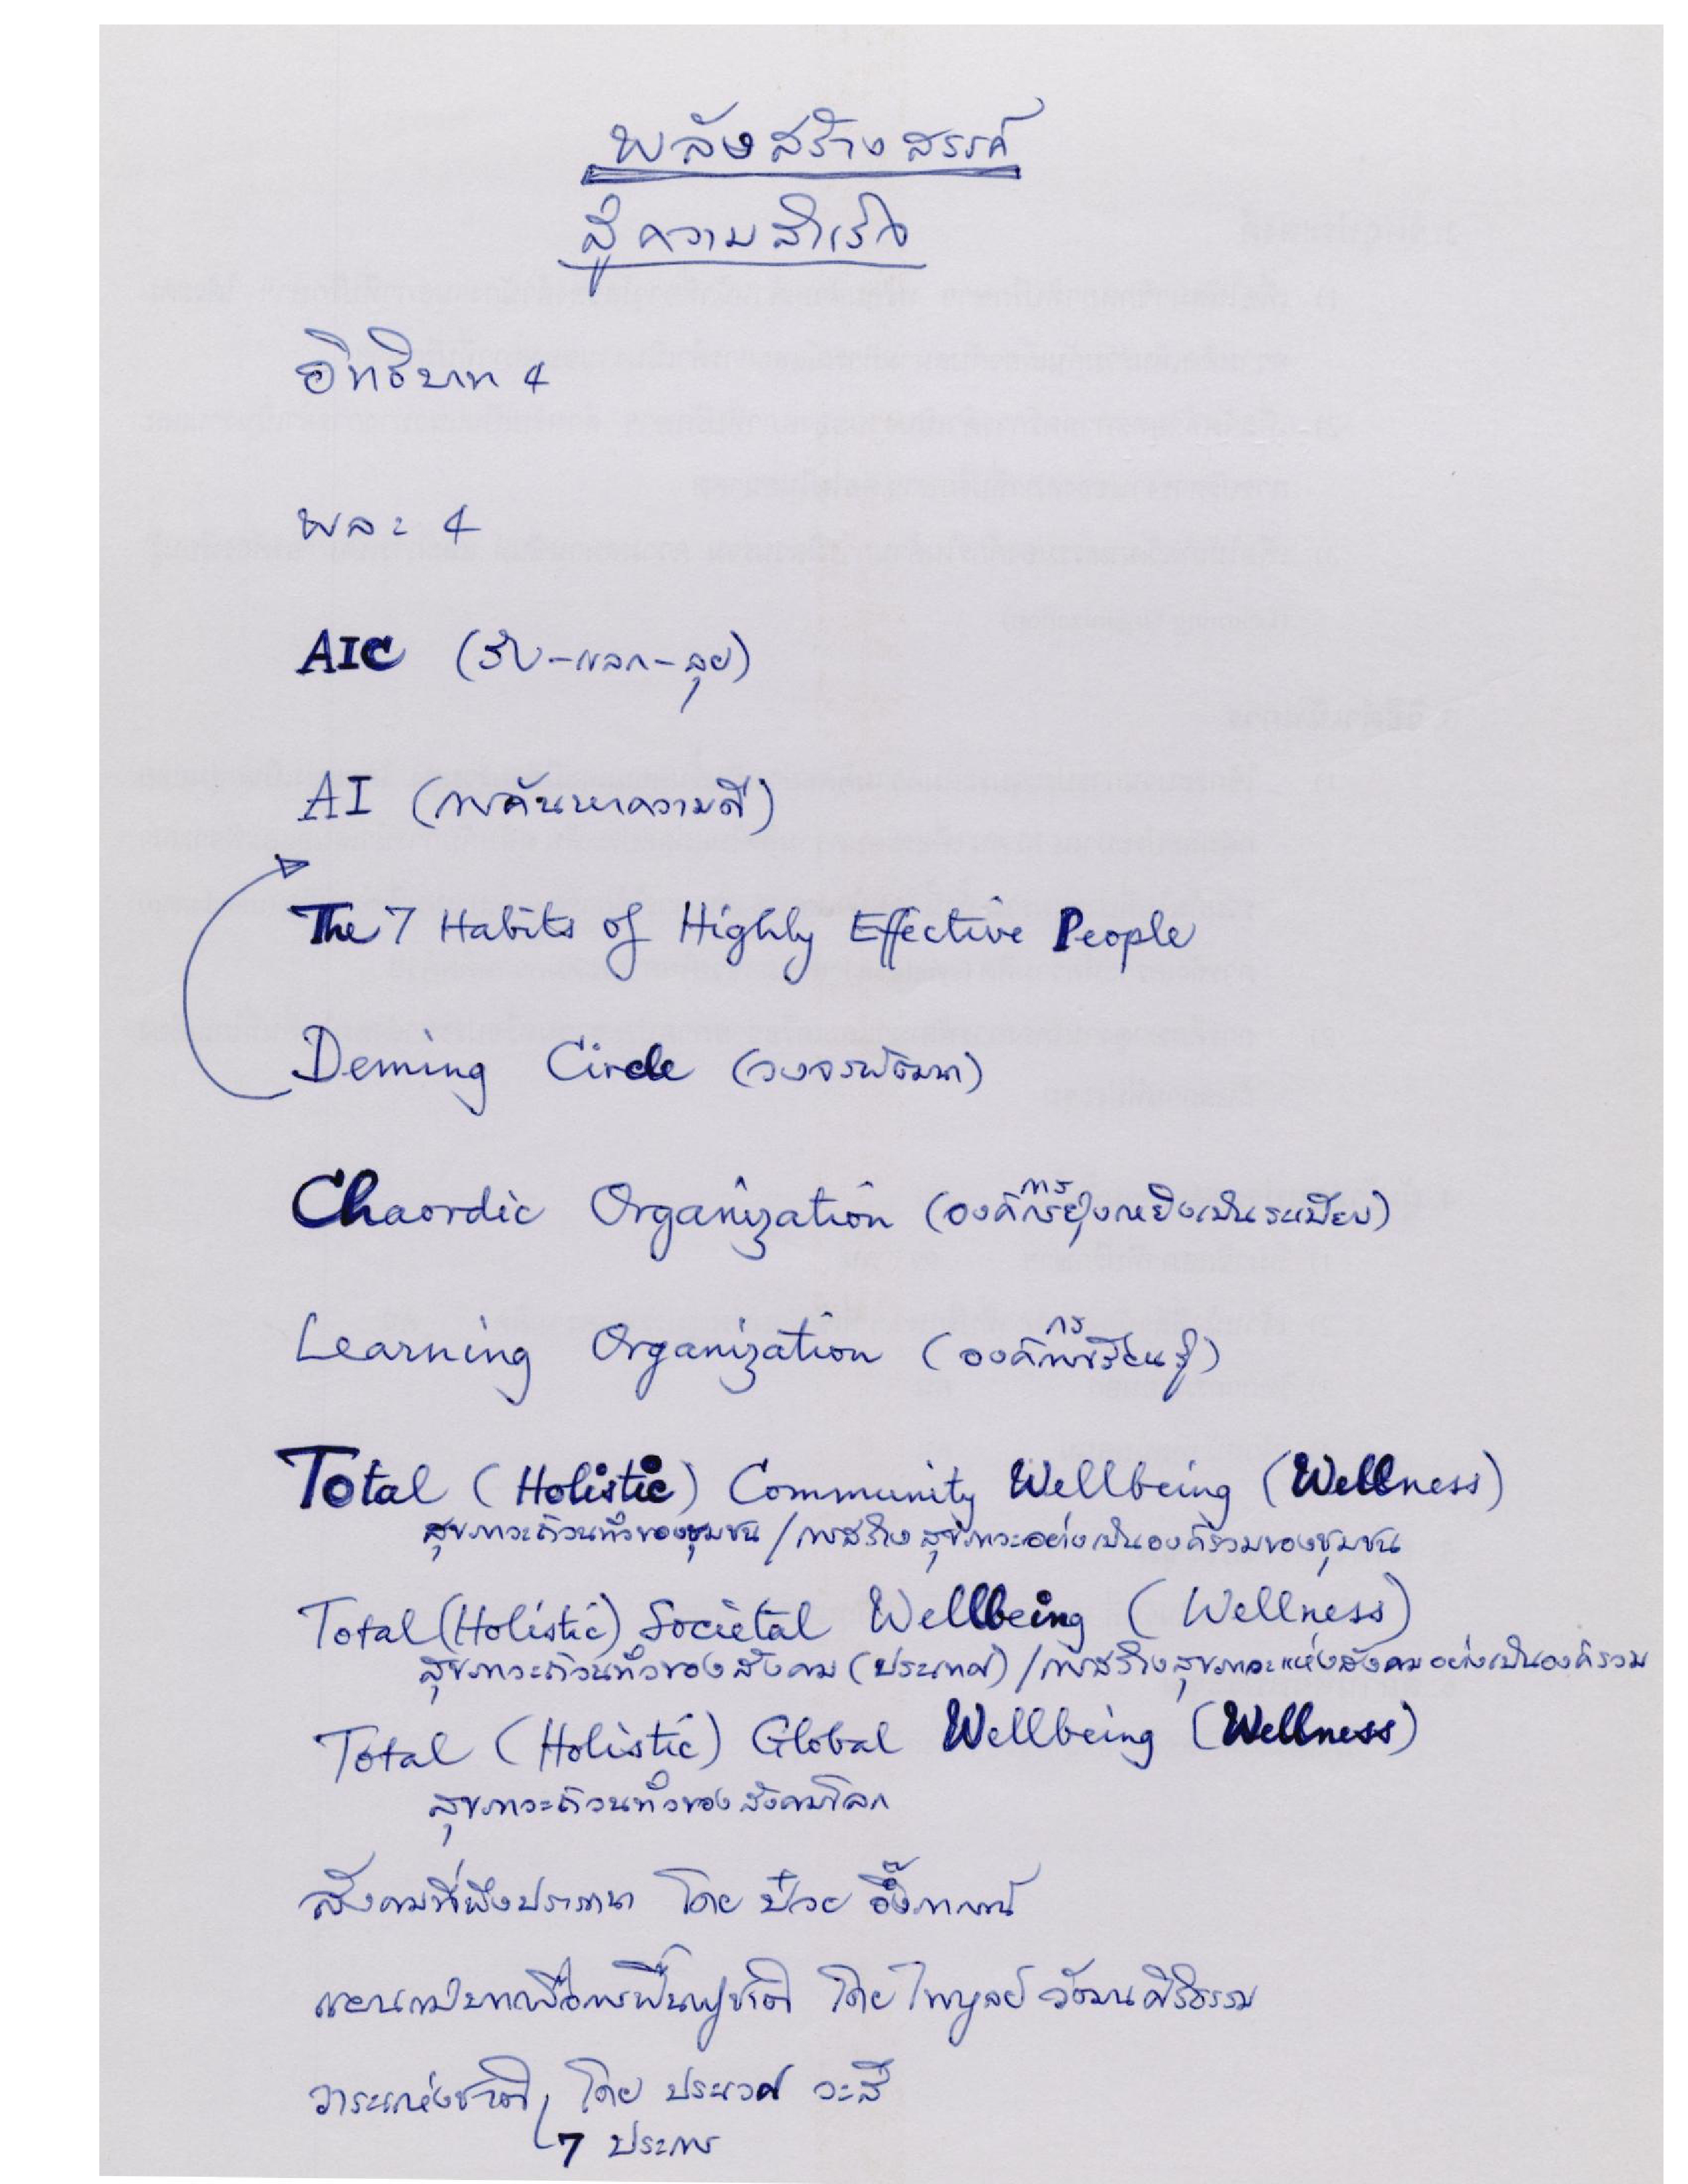 พลังสร้างสรรค์
สู่ความสำเร็จ
อิทธิบาท 4
พละ 4
AIC (รับ-แลก-ลุย)
AI (การค้นหาความดี)
The 7 Habits of Highly Effective People
Deming Circle (วงจรพัฒนา)
Chaordic Organization (องค์การยุ่งเหยิงเป็นระเบียบ)
Learning Organization (องค์การเรียนรู้)
Total (Holistic) Community Wellbeing (Wellness)
สุขภาวะถ้วนทั่วของชุมชน / การสร้างสุขภาวะอย่างเป็นองค์รวมของชุมชน
Total (Holistic) Societal Wellbeing (Wellness)
สุขภาวะถ้วนทั่วของสังคม (ประเทศ) / การสร้างสุขภาวะแห่งสังคมอย่างเป็นองค์รวม
Total (Holistic) Global Wellbeing (Wellness)
สุขภาวะถ้วนทั่วของสังคมโลก
สังคมที่พึงปรารถนา โดย ป๋วย อึ๊งภากรณ์
แผนแม่บทเพื่อการฟื้นฟูชาติ โดย ไพบูลย์ วัฒนศิริธรรม
วาระแห่งชาติ โดย ประเวศ วะสี
7 ประการ